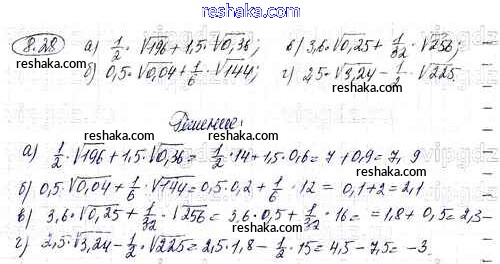 reshaka.ru
8.28 а) 1/2·√196 + 1,5·√0,36; в) 3,6·√0,25 + 1/32·√256;
б) 0,5·√0,04 + 1/6·√144; г) 2,5·√3,24 − 1/2·√225
reshaka.ru reshaka.ru
Решение:
reshaka.ru
а) 1/2·√196 + 1,5·√0,36 = 1/2·14 + 1,5·0,6 = 7 + 0,9 = 7,9
б) 0,5·√0,04 + 1/6·√144 = 0,5·0,2 + 1/6·12 = 0,1 + 2 = 2,1
в) 3,6·√0,25 + 1/32·√256 = 3,6·0,5 + 1/32·16 = = 1,8 + 0,5 = 2,3
г) 2,5·√3,24 − 1/2·√225 = 2,5·1,8 − 1/2·15 = 4,5 − 7,5 = −3
reshaka.ru reshaka.ru